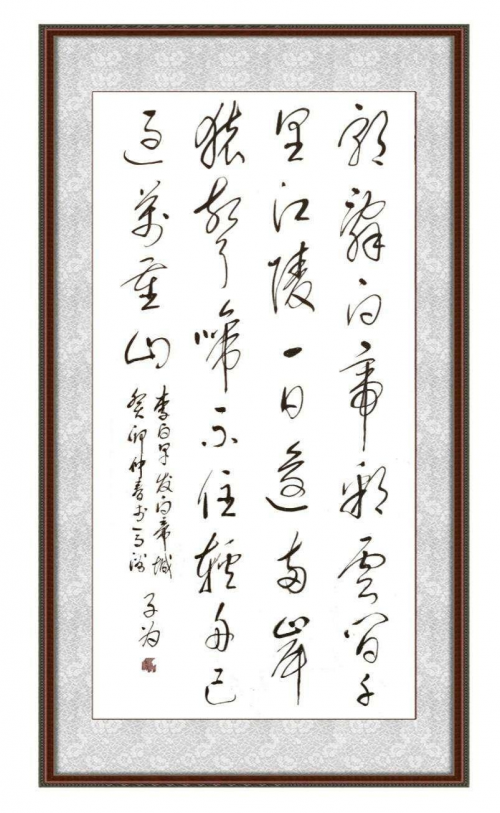 朝辭白帝彩雲间千
里江陵一日還兩岸
猿聲啼不住輕舟已
過萬重山
李白早发白帝城
癸卯仲春书于
子为